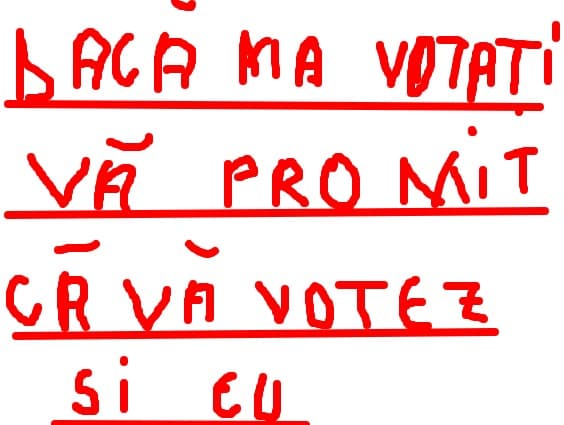 DACĂ MA VOTATI
VĂ PROMIT
CĂ VĂ VOTEZ
SI EU